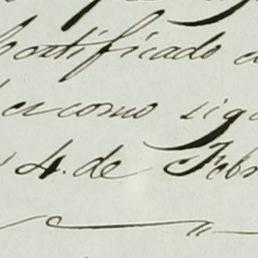 Certificado
como sigu
4. de Febr